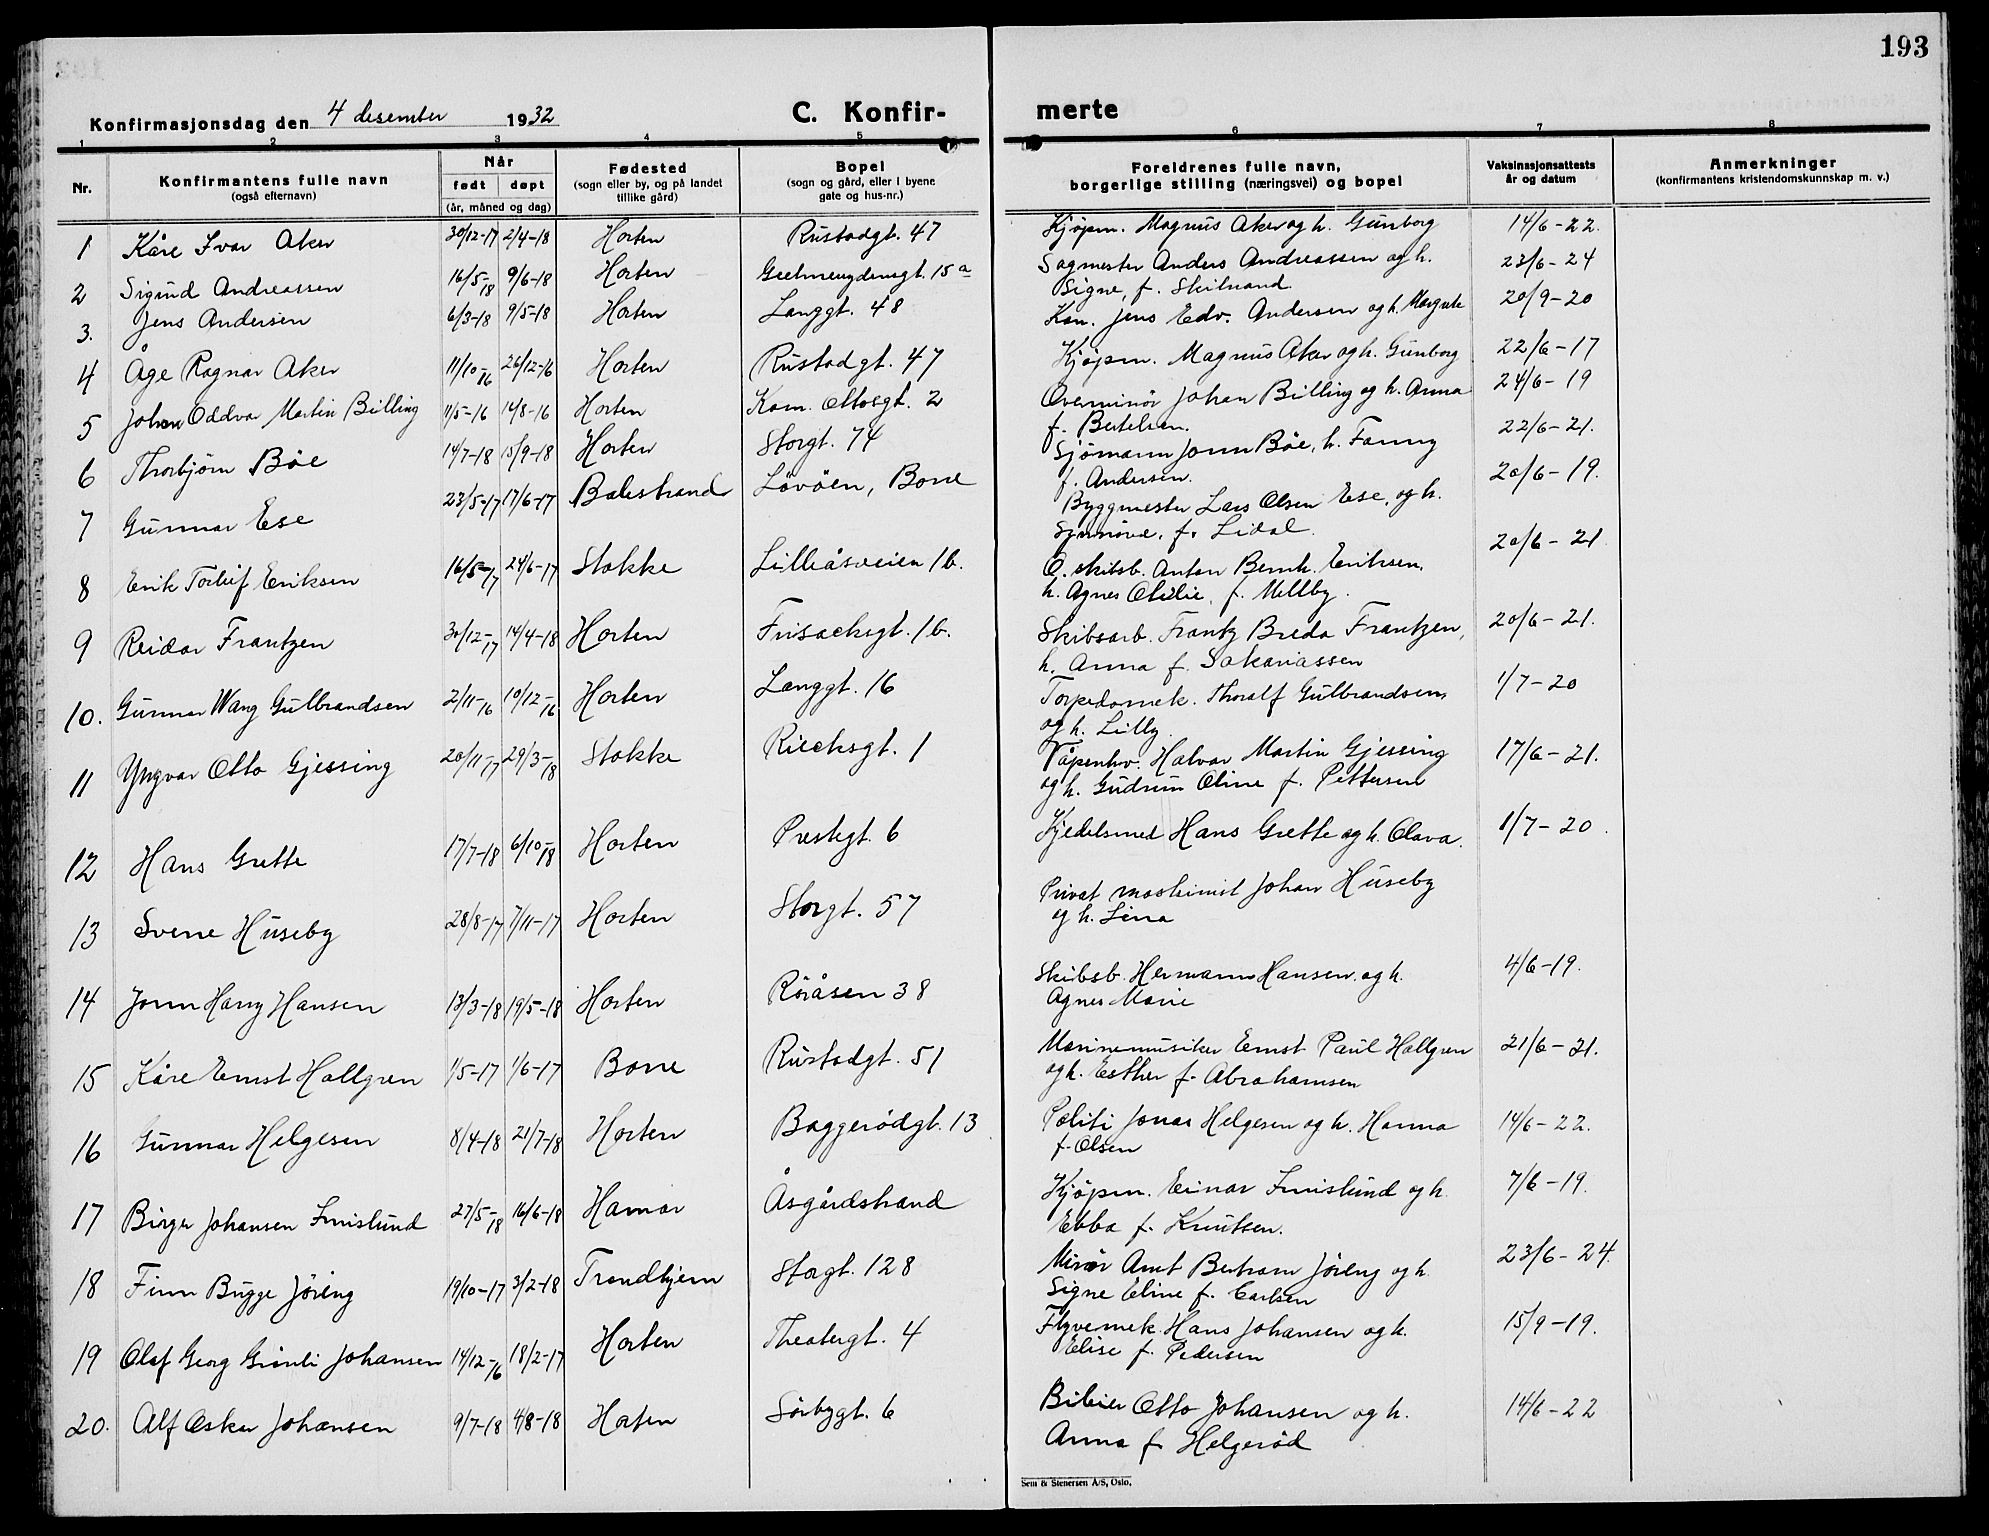 193
Konfirmasjonsdag den 4 desember 1932
C. Konfir-
merte
1 2 3 4 5 6 7 8
Nr. Konfirmantens fulle navn (også efternavn) Når født døpt (år, måned og dag) Fødested (sogn eller by, og på landet tillike gård) Bopel (sogn og gård, eller i byene gate og hus-nr.) Foreldrenes fulle navn, borgerlige stilling (næringsvei) og bopel Vaksinasjonsattests år og datum Anmerkninger (konfirmantens kristendomskunnskap m. v.)
1 Kåre Ivar Aker 30/12-17 2/4-18 Horten Rustadgt. 47 Kjøpm. Magnus Aker og h. Gunborg 14/6-22.
2 Sigurd Andreassen 16/5-18 9/6-18 Horten 15a Sagmester Anders Andreassen og h. 23/6-24
Signe, f.
3. Jens Andersen 6/3-18 9/5-18 Horten Langgt. 48 Kan. Jens Edv. Andersen og h. Margrete 20/9-20
4 Åge Ragnar Aker 11/10-16 26/12-16 Horten Rustadgt. 47 Kjøpm. Magnus Aker og h. Gunborg 22/6-17
5 Johan Oddvar Martin Billing 11/5-16 14/8-16 Horten Kom. Ottosgt. 2 Overminör Johan Billing og h. Anna 24/6-19
f. Bertelsen.
6 Thorbjörn Böe 14/7-18 15/9-18 Horten Storgt. 74 Sjömann Jonn Böe, h. Fanny 22/6-21.
f. Andersen.
7 Gunnar Ese 23/5-17 17/6-17 Balestrand Lövöen, Borre Byggmester Lars Olsen Ese, og h. 20/6-19.
Synnöve, f. Lidal.
8 Erik Torleif Eriksen 16/5-17 24/6-17 Stokke Lilleåsveien 1b. Q. skibsb. Anton Bernh. Eriksen, 20/6-21
h. Agnes Otilie, f. Mellby.
9 Reidar Frantzen 30/12-17 14/4-18 Horten Frisaksgt. 1b. Skibsarb. Frantz Breda Frantzen, 20/6-21.
h. Anna f. Sakariassen
10. Gunnar Wang Gulbrandsen 2/11-16 10/12-16 Horten Langgt. 16 Torpedomek. Thoralf Gulbrandsen, 1/7-20
og h. Lilly.
11 Yngvar Otto Gjessing 20/11-17 29/3-18 Stokke Riecksgt. 1 Våpenhv. Halvar Martin Gjessing 17/6-21.
og h. Gudrun Oline f. Pettersen
12 Hans Grette 17/7-18 6/10-18 Horten Prestegt. 6 Kjedelsmed Hans Grette og h. Olava. 1/7-20.
13 Svene Huseby 28/8-17 7/11-17 Horten Storgt. 57 Privat maskinist Johan Huseby
og h. Lina
14 Jonn Harry Hansen 13/3-18 19/5-18 Horten Röråsen 38 Skibsb. Hermann Hansen og h. 4/6-19.
Agnes Marie
15 Kåre Ernst Hallgren 1/5-17 1/6-17 Borre Rustadgt. 51 Marinemusiker Ernst Paul Hallgren 21/6-21.
og h. Esther f. Abrahamsen
16 Gunnar Helgesen 8/4-18 21/7-18 Horten Baggerödgt. 13 Politi Jonas Helgesen og h. Hanna 14/6-22.
f. Olsen
17 Birger Johansen Furuslund 27/5-18 16/6-18 Hamar Åsgårdstrand Kjöpm. Einar Furuslund og h. 7/6-19.
Ebba f. Knutsen.
18 Finn Bugge Jöreng 19/10-17 3/2-18 Trondhjem Storgt. 128 Minör Arnt Bertram Jöreng og h. 23/6-24.
Signe Eline f. Carlsen
19 Olaf Georg Grönli Johansen 14/12-16 18/2-17 Horten Theatergt. 4 Flyvemek. Hans Johansen og h. 15/9-19.
Elise f. Pedersen
20. Alf Oskar Johansen 9/7-18 4/8-18 Horten Sörbygt. 6 Bileier Otto Johansen og h. 14/6-22
Anna f. Helgeröd
Sem & Stenersen A/S, Oslo.